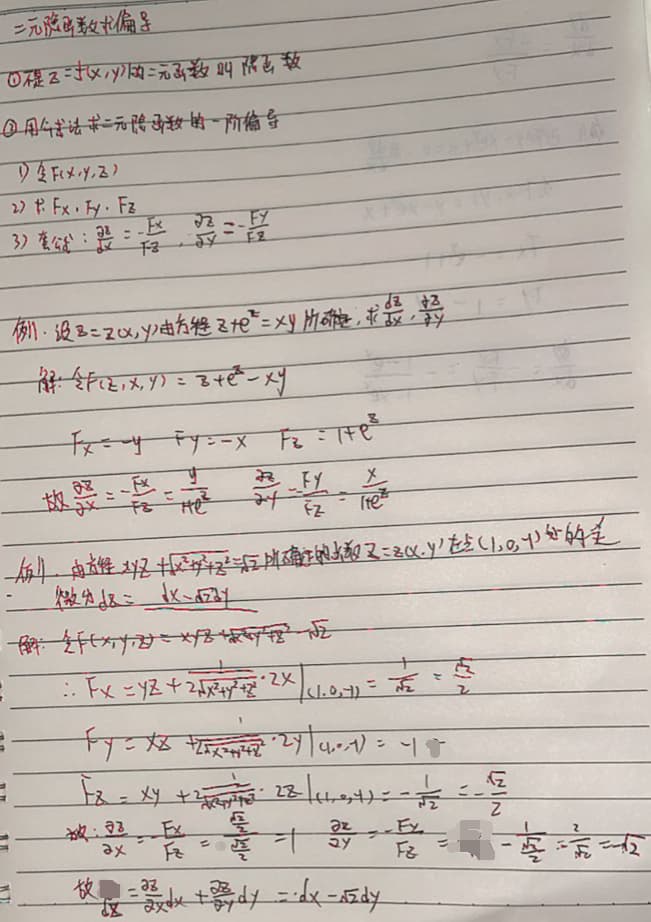 二元隐函数求偏导
①不是z=f(x,y)的二元函数叫隐函数
②用公式法求二元隐函数的一阶偏导
1) 令F(x,y,z)
2) 求Fx,Fy,Fz
3) 套公式: ∂z/∂x = -Fx/Fz, ∂z/∂y = -Fy/Fz
例1.设z=z(x,y)由方程z+e^z=xy所确定,求∂z/∂x,∂z/∂y
解:令F(z,x,y)=z+e^z-xy
Fx=-y Fy=-x Fz=1+e^z
故∂z/∂x=-Fx/Fz=y/(1+e^z) ∂z/∂y=-Fy/Fz=x/(1+e^z)
例 由方程xyz+√(x²+y²+z²)=√2所确定的函数z=z(x,y)在点(1,0,-1)处的全
微分dz=dx-√2dy
解:令F(x,y,z)=xyz+√(x²+y²+z²)-√2
∴Fx=yz+1/(2√(x²+y²+z²))·2x|(1,0,-1)=1/√2=√2/2
Fy=xz+1/(2√(x²+y²+z²))·2y|(1,0,-1)=-1
Fz=xy+1/(2√(x²+y²+z²))·2z|(1,0,-1)=-1/√2=-√2/2
故:∂z/∂x=-Fx/Fz=(√2/2)/(√2/2)=1 ∂z/∂y=-Fy/Fz= -1/(√2/2)=2/√2=-√2
故dz=∂z/∂x dx+∂z/∂y dy=dx-√2dy